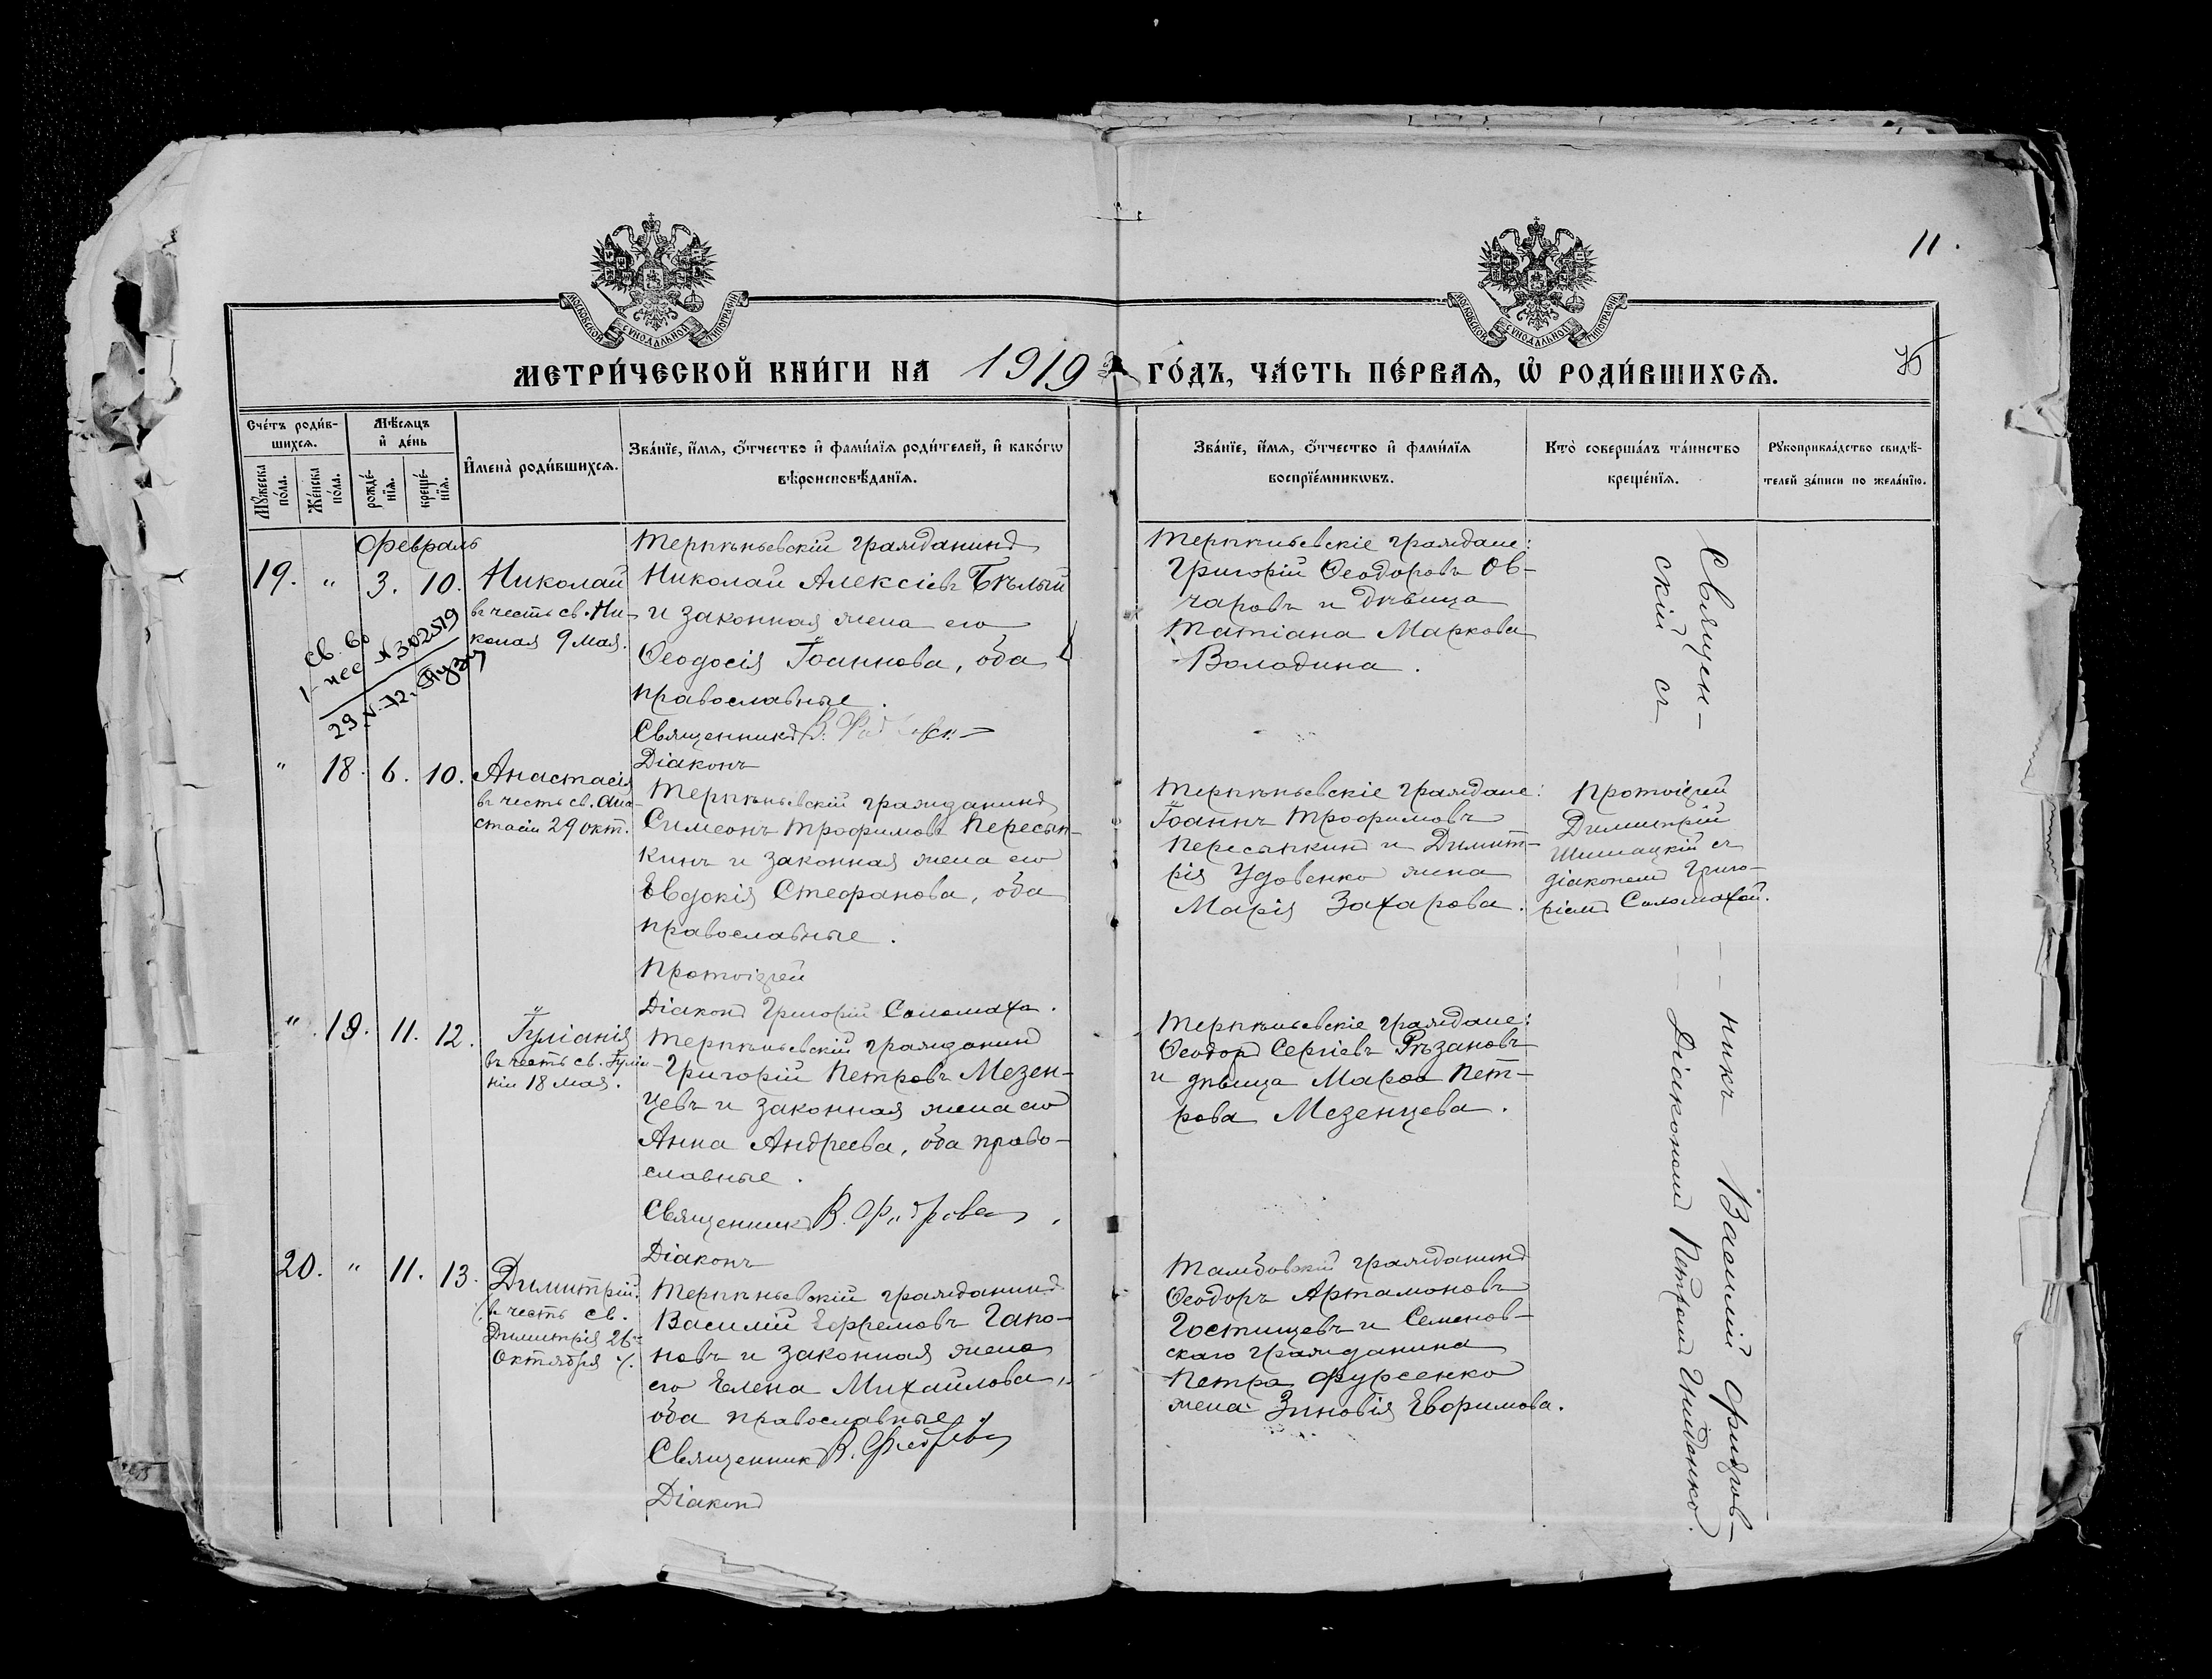 11.
МОСКОВСКОЙ СѴНОДАЛЬНОЙ ТИПОГРАФІИ
МОСКОВСКОЙ СѴНОДАЛЬНОЙ ТИПОГРАФІИ
МЕТРИ́ЧЕСКОЙ КНИ́ГИ НА 1919 ГО́ДЪ, ЧА́СТЬ ПЕ́РВАЯ, Ѡ҆ РОДИ́ВШИХСѦ.
Сче́тъ роди́в-
шихсѧ.
Мꙋ́жеска по́ла.
Же́нска по́ла.
Мѣ́сѧцъ
и҆ де́нь
рожде́-
нїѧ.
креще́-
нїѧ.
И҆мена̀ роди́вшихсѧ.
Зва́нїе, и҆́мѧ, ѻ҆́тчество и҆ фами́лїѧ роди́телей, и҆ како́гѡ
вѣроисповѣ́данїѧ.
Зва́нїе, и҆́мѧ, ѻ҆́тчество и҆ фами́лїѧ
воспрїе́мникѡвъ.
Кто̀ соверша́лъ та́инство
креще́нїѧ.
Рꙋкоприкла́дство свидѣ́-
телей за́писи по жела́нїю.
Февраль
19. " 3. 10.
Николай
въ честь св. Ни-
колая 9 мая.
Терпѣньевскій гражданинъ
Николай Алексіевъ Бѣлый
и законная жена его
Ѳеодосія Іоаннова, оба
православные.
Священникъ В.
Діаконъ
Терпѣньевскіе граждане:
Григорій Ѳеодоровъ Ов-
чаровъ и дѣвица
Татіана Маркова
Володина.
св. во
N 302519
29.V.72.
" 18. 6. 10.
Анастасія
въ честь св. Ана-
стасіи 29 окт.
Терпѣньевскій гражданинъ
Симеонъ Трофимовъ Пересып-
кинъ и законная жена его
Евдокія Стефанова, оба
православные.
Протоіерей
Діаконъ Григорій Соломаха.
Терпѣньевскіе граждане:
Іоаннъ Трофимовъ
Пересыпкинъ и Димит-
рія Удовенко жена
Марія Захарова.
Протоіерей
Димитрій
Шишацкій съ
діакономъ Григо-
ріемъ Соломахой.
" 19. 11. 12.
Іуліанія
въ честь св. Іуліа-
ніи 18 мая.
Терпѣньевскій гражданинъ
Григорій Петровъ Мезен-
цевъ и законная жена его
Анна Андреева, оба право-
славные.
Священникъ В.
Діаконъ
Терпѣньевскіе граждане:
Ѳеодоръ Сергіевъ Рѣзановъ
и дѣвица Марѳа Пет-
рова Мезенцева.
20. " 11. 13.
Димитрій.
въ честь св.
Димитрія 26-
октября
Терпѣньевскій гражданинъ
Василій Ефремовъ Гапо-
новъ и законная жена
его Елена Михайлова,
оба православные.
Священникъ В.
Діаконъ
Тамбовскій гражданинъ
Ѳеодоръ Артамоновъ
Гостищевъ и Семенов-
скаго гражданина
Петра Фурсенко
жена Зиновія Евфимова.
Священ-
никъ Василій
скій съ
Діакономъ Петромъ Гнѣденко.